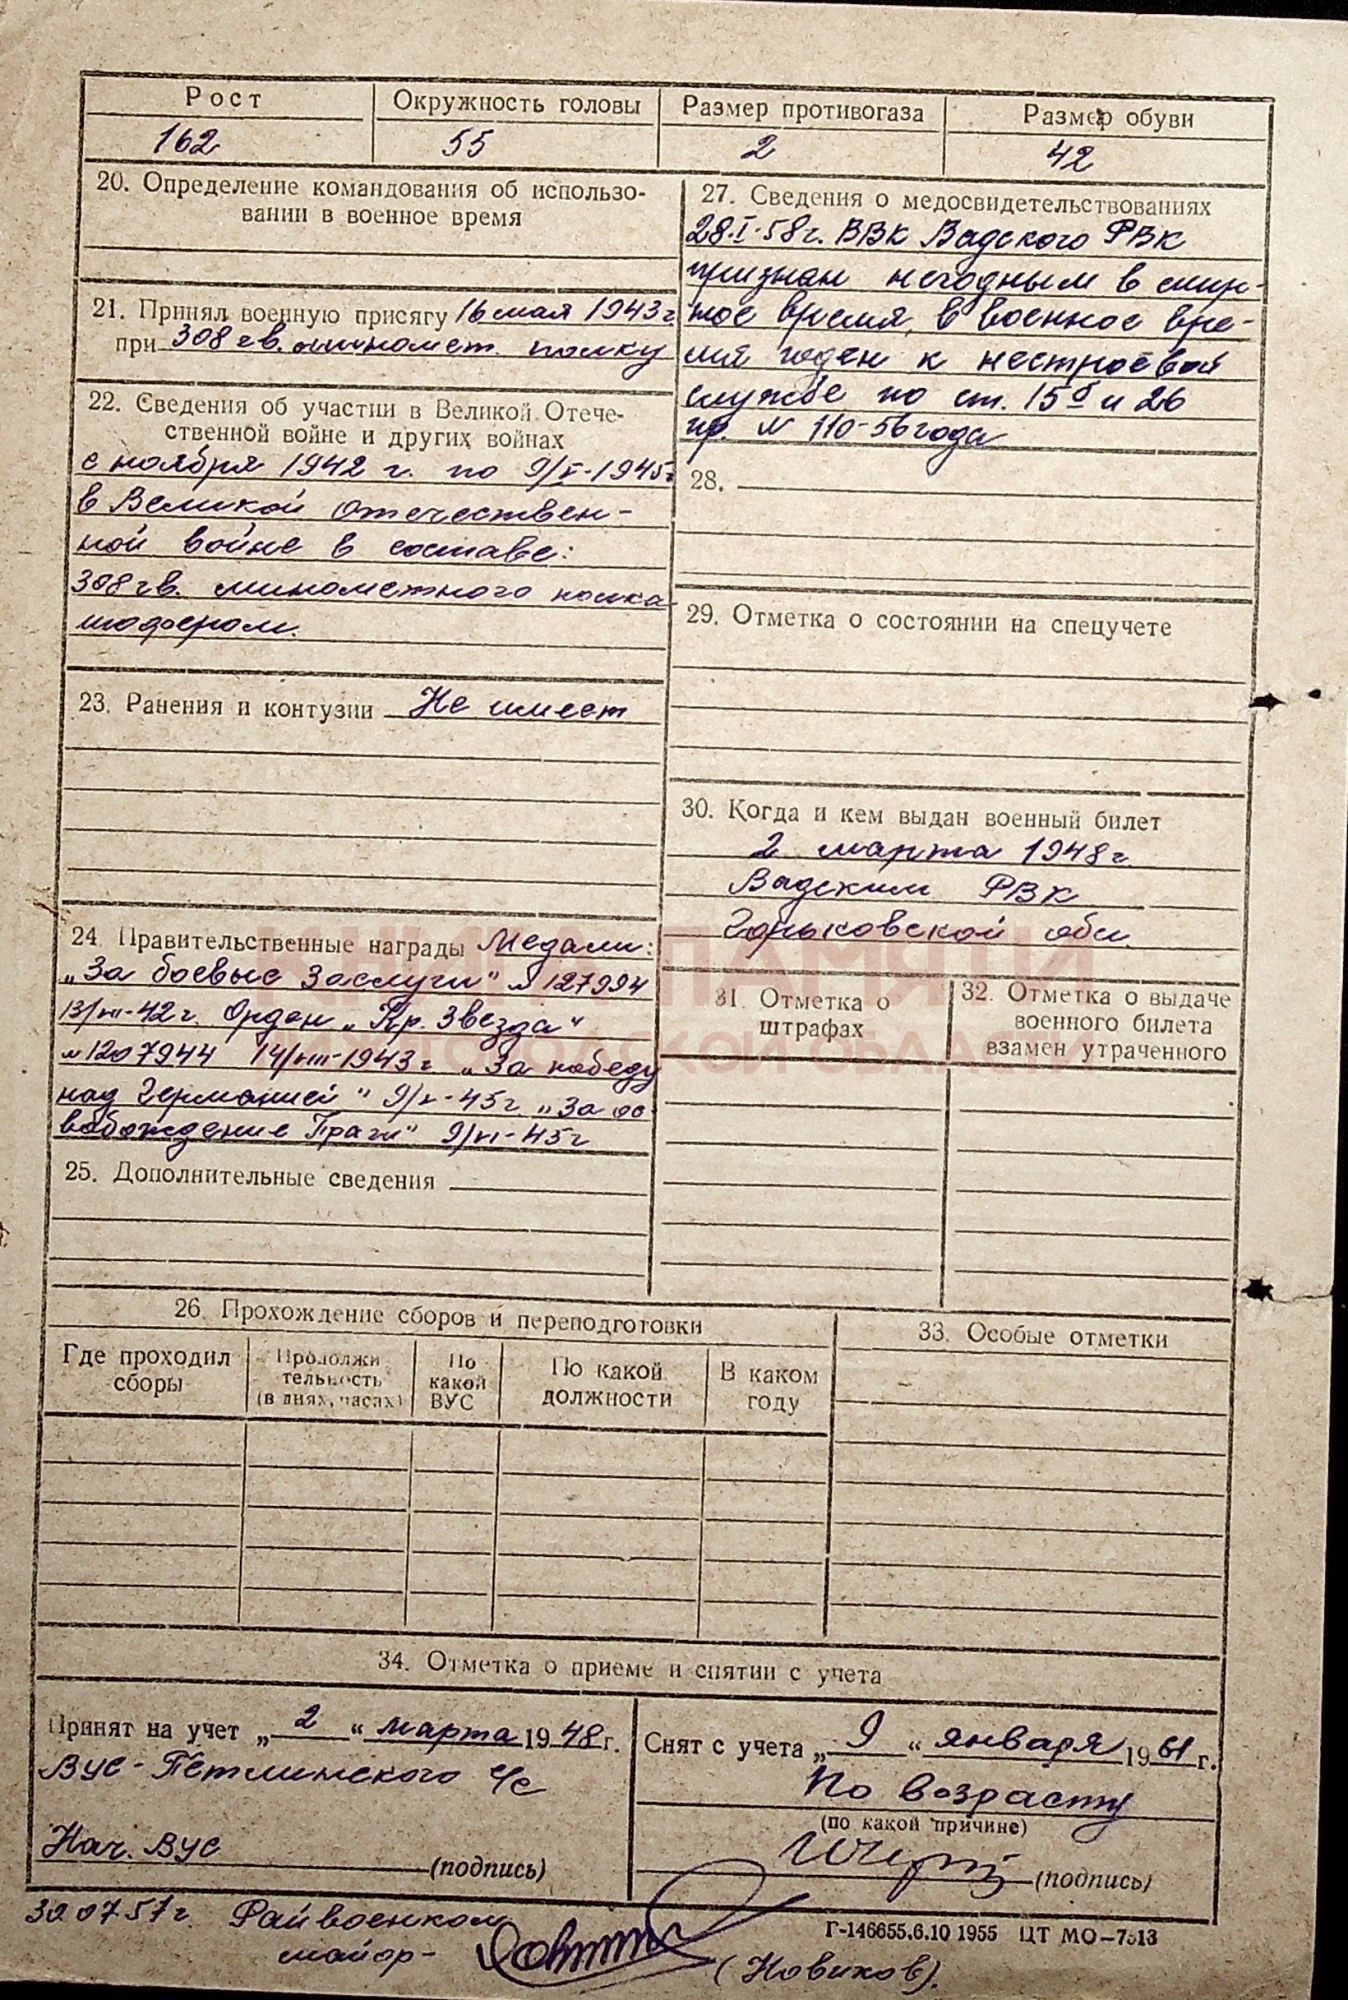 Рост Окружность головы Размер противогаза Размер обуви
162 55 2 42
20. Определение командования об использо-
вании в военное время
21. Принял военную присягу 16 мая 1943 г.
при 308 гв. миномет. полку
22. Сведения об участии в Великой Отече-
ственной войне и других войнах
с ноября 1942 г. по 9/V-1945 г
в Великой Отечествен-
ной войне в составе:
308 гв. минометного полка
шофером.
23. Ранения и контузии Не имеет
24. Правительственные награды Медали:
„За боевые Заслуги" № 127994
13/VII-42 г. Орден „Кр. Звезда"
№ 1207944 14/VIII-1943 г „За победу
над Германией" 9/V-45 г. „За ос
вобождение Праги" 9/VI-45 г
25. Дополнительные сведения
26. Прохождение сборов и переподготовки
Где проходил
сборы
Продолжи
тельность
(в днях, часах)
По
какой
ВУС
По какой
должности
В каком
году
27. Сведения о медосвидетельствованиях
28.I-58 г. ВВК Вадского РВК
признан негодным в мир-
ное время, в военное вре-
мя годен к нестроевой
службе по ст. 15б и 26
пр. № 110-56 года
28.
29. Отметка о состоянии на спецучете
30. Когда и кем выдан военный билет
2 марта 1948 г.
Вадским РВК
Горьковской обл
31. Отметка о
штрафах
32. Отметка о выдаче
военного билета
взамен утраченного
33. Особые отметки
КНИГА ПАМЯТИ
НИЖЕГОРОДСКОЙ ОБЛАСТИ
34. Отметка о приеме и снятии с учета
Принят на учет „2" марта 1948 г.
ВУС-Петлинского с/с
Нач. ВУС (подпись)
Снят с учета „9" января 1961 г.
По возрасту
(по какой причине)
(подпись)
30 07 57 г. Райвоенком
майор- (Новиков).
Г-146655.6.10 1955 ЦТ МО-7513